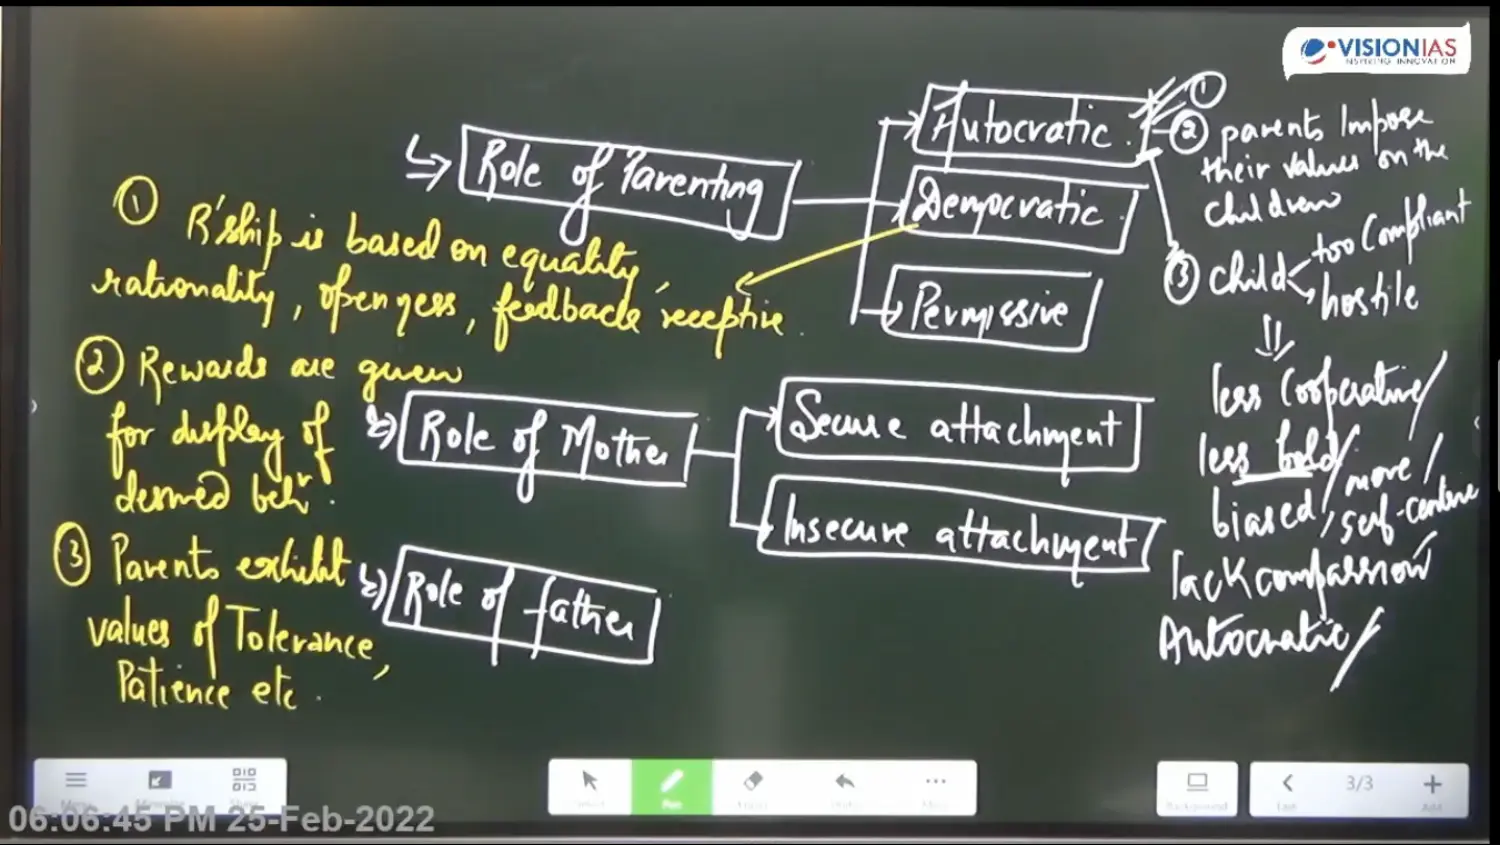 VISIONIAS
INSPIRING INNOVATION
Role of Parenting
Autocratic
Democratic
Permissive
①
② parents Impose
their values on the
children
③ child
too Compliant
hostile
less Cooperative/
less bold/
biased/ more/
self-centere
lack compassion
Autocratic/
① R'ship is based on equality,
rationality, openness, feedback receptive.
② Rewards are given
for display of
desired behr.
③ Parents exhibit
values of Tolerance,
Patience etc.
Role of Mother
Secure attachment
Insecure attachment
Role of father
Menu
Pen
Background
3/3
Add
06:06:45 PM 25-Feb-2022